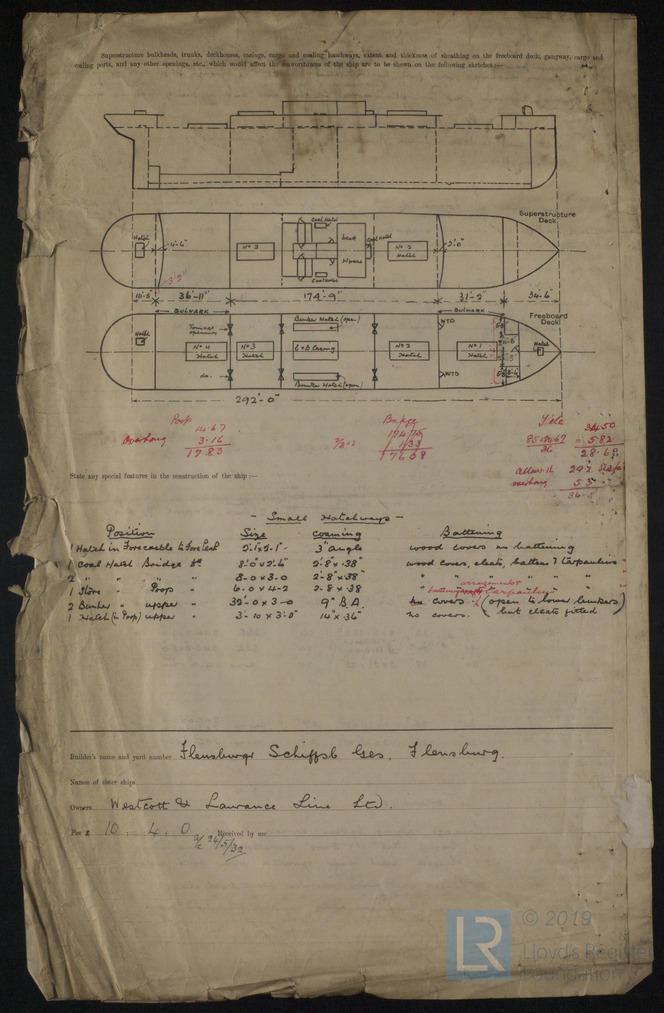 Superstructure bulkheads, trunks, deckhouses, casings, cargo and coaling hatchways, extent and thickness of sheathing on the freeboard deck, gangway, cargo and
coaling ports, and any other openings, etc., which would affect the seaworthiness of the ship are to be shewn on the following sketches:—
Superstructure
Deck.
Hatch
4'-6"
No 3
Coal Hatch
Coal Hatch
No 2
Hatch
2'-0"
3'2"
36'-11"
174'-9"
31'-2"
34'-6"
BULWARK
BULWARK
Freeboard
Deck
Hatch
Tonnage
openings
Bunker Hatch (open)
WTD
No 4
Hatch
No 3
Hatch
Casing
No 2
Hatch
No 1
Hatch
Hatch
do.
Bunker Hatch (open)
WTD
292'-0"
Poop
14.67
Overhang 3.16
17.83
Bridge
174.75
1.33
176.08
34.50
5.82
28.68
overhang
State any special features in the construction of the ship :—
- Small Hatchways -
Position Size Coaming Battening
1 Hatch in Forecastle to Fore Peak 2'-1"x2'-1" 3" angle wood covers no battening
1 Coal Hatch Bridge dk 8'-0"x2'-6" 2'-8"x.38" wood covers, cleats, battens & tarpaulins
2 " " " 8-0 x 3-0 2-8"x.38" " " " "
arrangements
1 Store " Poop " 6-0 x 4-2 2-8 x .38
2 Bunker " upper " 32'-0 x 3-0 9" B.A. no covers (open to lower bunkers)
1 Hatch (in Poop) upper " 3-10 x 3'-0" 14"x.36" no covers. (but cleats fitted
Builder's name and yard number Flensburgr Schiffsb Ges, Flensburg.
Names of sister ships
Owners Westcott & Laurance Line Ltd.
Fee £ 10 . 4 . 0 Received by me
a/c 24/5/32
LR
© 2019
Lloyd's Register
Foundation